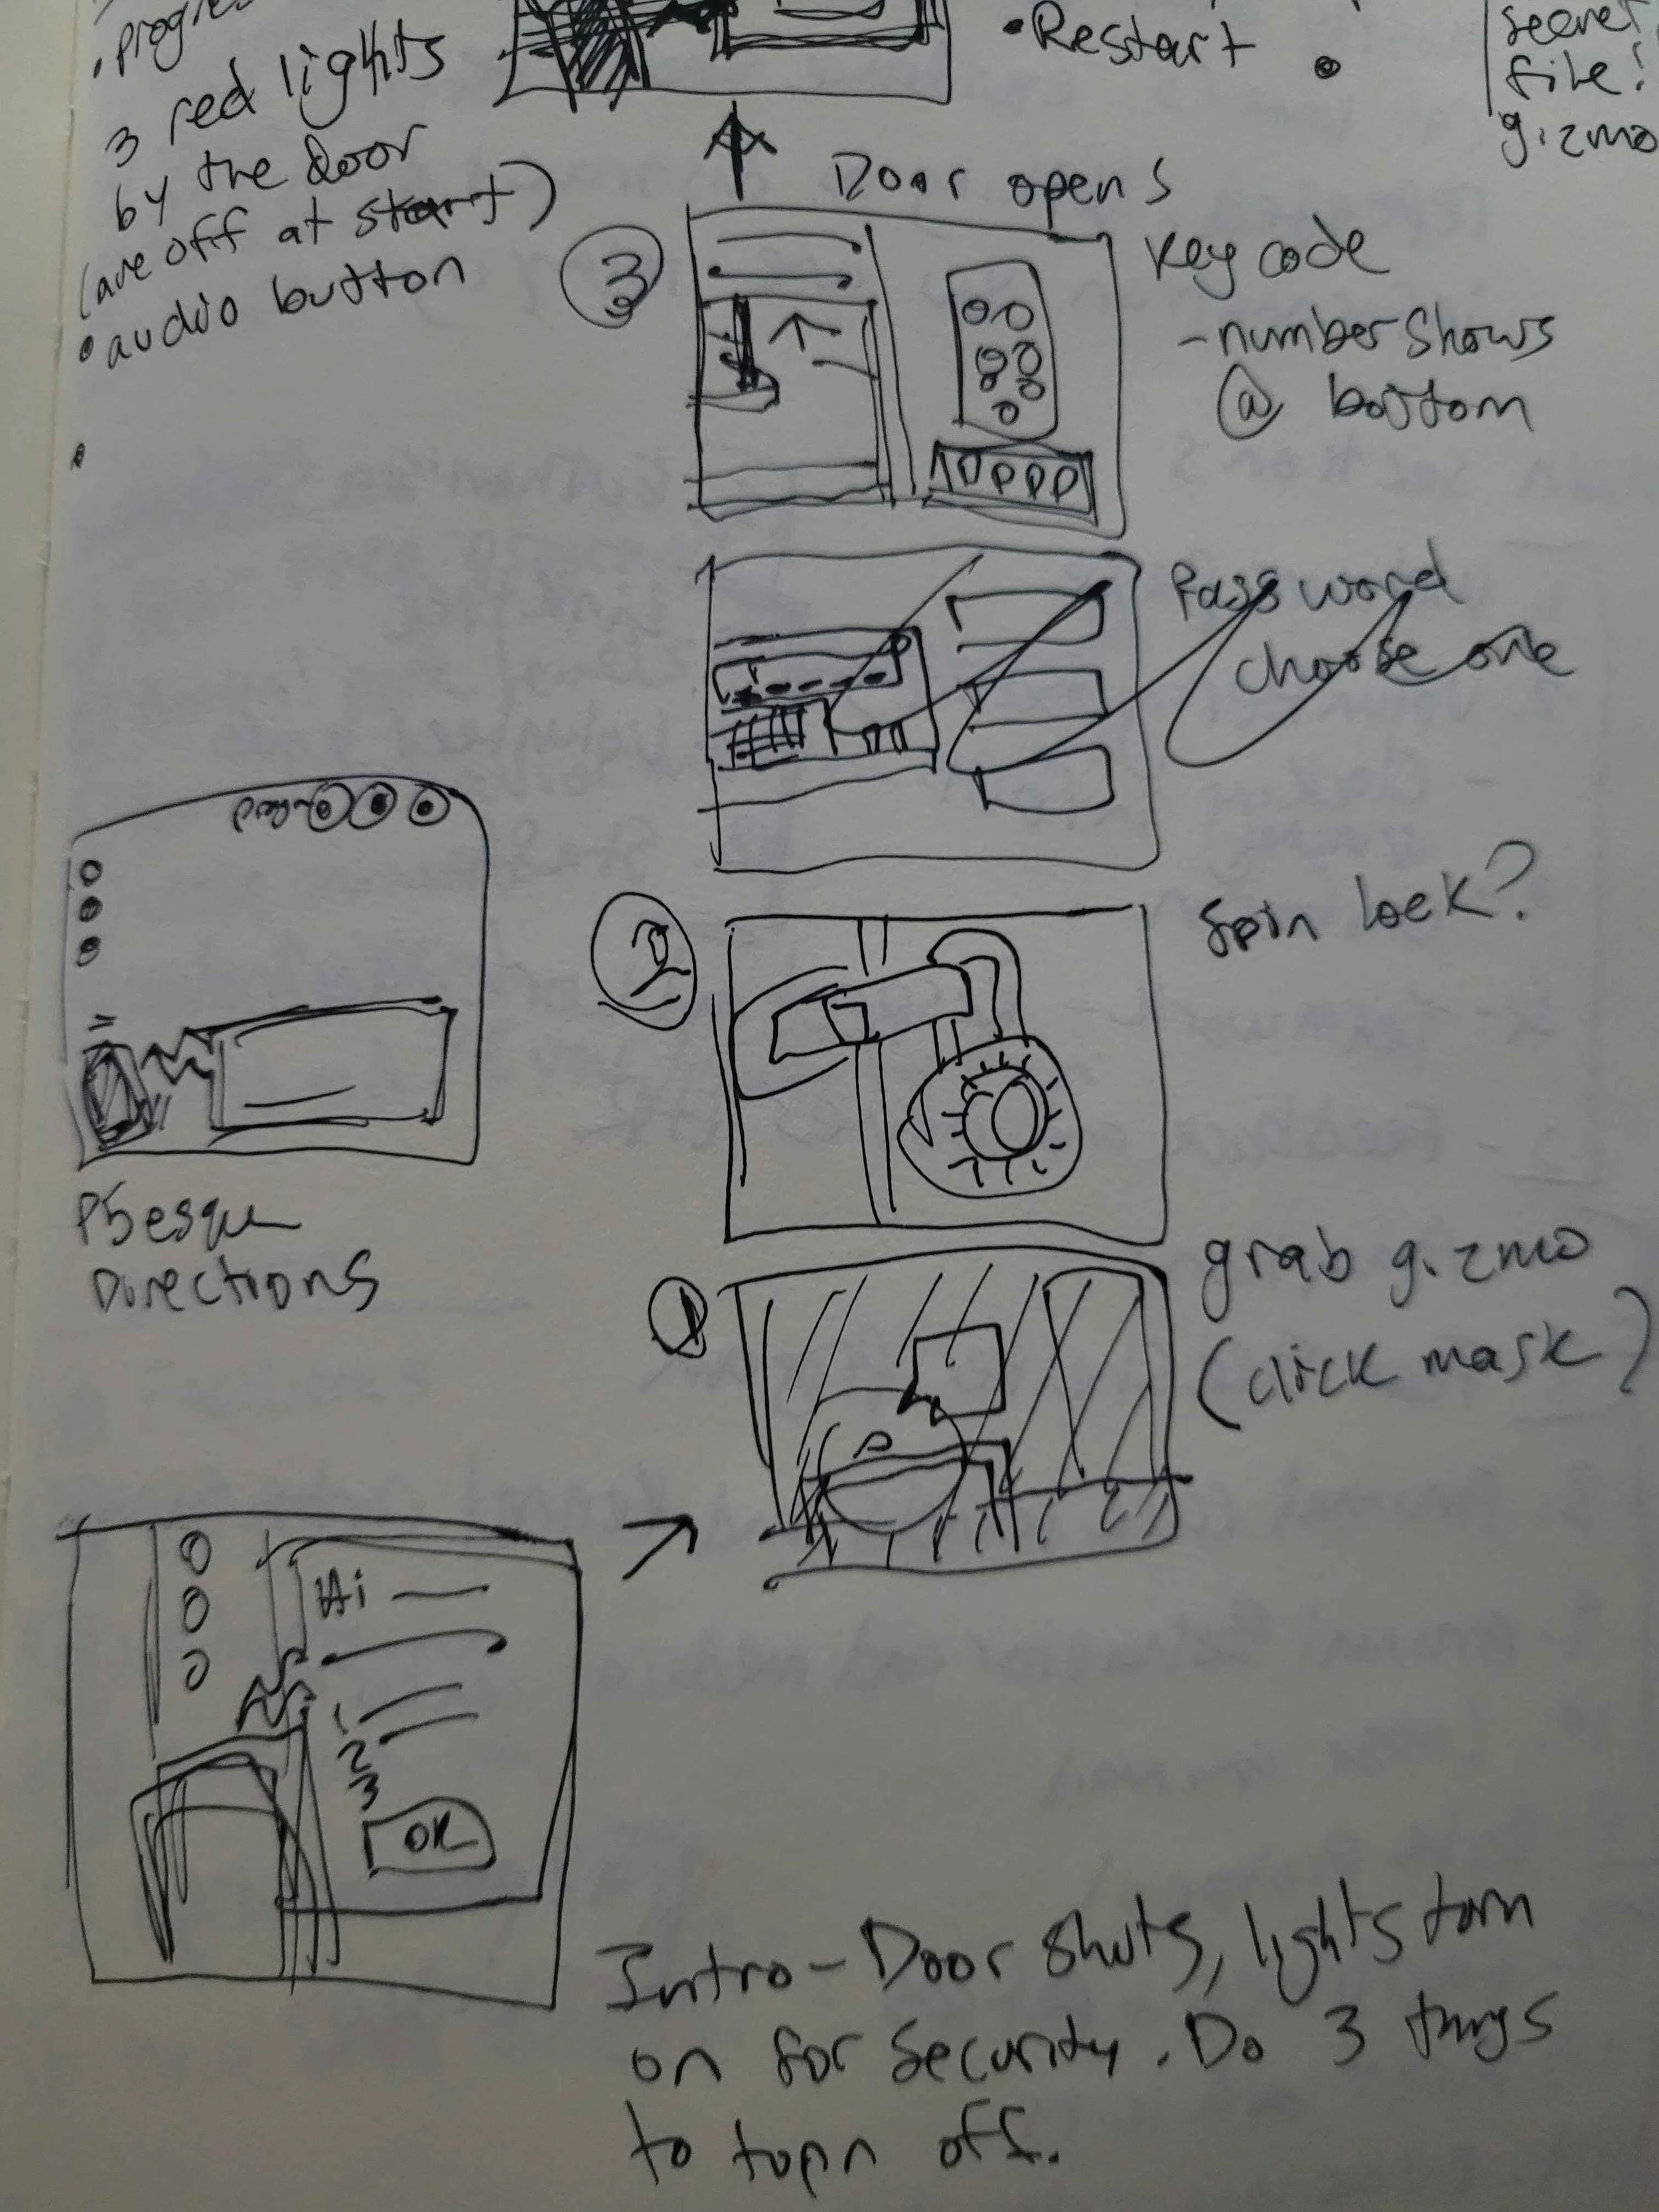 3 red lights
by the Door
(are off at start)
• audio button
• Restart
secret
file!
gizmo
Door opens
3
Key code
- number shows
@ bottom
Password
choose one
2
Spin lock?
P5esque
Directions
1
grab gizmo
(click mask)
Hi
1
2
3
OK
Intro - Door shuts, lights turn
on for security. Do 3 things
to turn off.